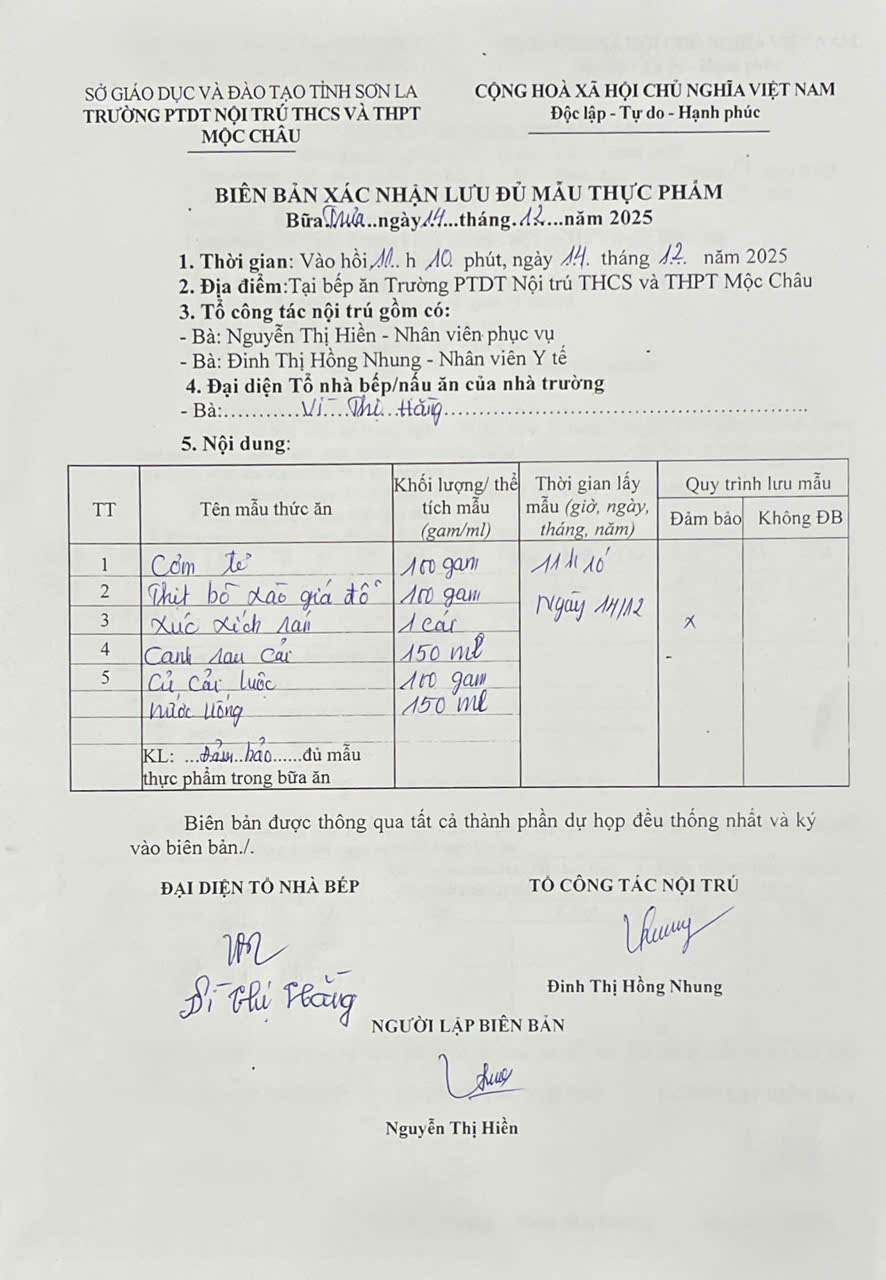 SỞ GIÁO DỤC VÀ ĐÀO TẠO TỈNH SƠN LA
TRƯỜNG PTDT NỘI TRÚ THCS VÀ THPT
MỘC CHÂU
CỘNG HOÀ XÃ HỘI CHỦ NGHĨA VIỆT NAM
Độc lập - Tự do - Hạnh phúc
BIÊN BẢN XÁC NHẬN LƯU ĐỦ MẪU THỰC PHẨM
Bữa Trưa..ngày 14...tháng.12...năm 2025
1. Thời gian: Vào hồi 11.. h 10. phút, ngày 14. tháng 12. năm 2025
2. Địa điểm:Tại bếp ăn Trường PTDT Nội trú THCS và THPT Mộc Châu
3. Tổ công tác nội trú gồm có:
- Bà: Nguyễn Thị Hiền - Nhân viên phục vụ
- Bà: Đinh Thị Hồng Nhung - Nhân viên Y tế
4. Đại diện Tổ nhà bếp/nấu ăn của nhà trường
- Bà:...........Vì Thị Hằng...........
5. Nội dung:
TT Tên mẫu thức ăn Khối lượng/ thể tích mẫu (gam/ml) Thời gian lấy mẫu (giờ, ngày, tháng, năm) Quy trình lưu mẫu
Đảm bảo Không ĐB
1 Cơm tẻ 100 gam 11h 10'
2 Thịt bò xào giá đỗ 100 gam Ngày 14/12
3 Xúc xích rán 1 cái x
4 Canh rau cải 150 ml
5 Củ cải luộc 100 gam
Nước uống 150 ml
KL: ...Đảm bảo......đủ mẫu
thực phẩm trong bữa ăn
Biên bản được thông qua tất cả thành phần dự họp đều thống nhất và ký
vào biên bản./.
ĐẠI DIỆN TỔ NHÀ BẾP TỔ CÔNG TÁC NỘI TRÚ
Vì Thị Hằng
Đinh Thị Hồng Nhung
NGƯỜI LẬP BIÊN BẢN
Nguyễn Thị Hiền